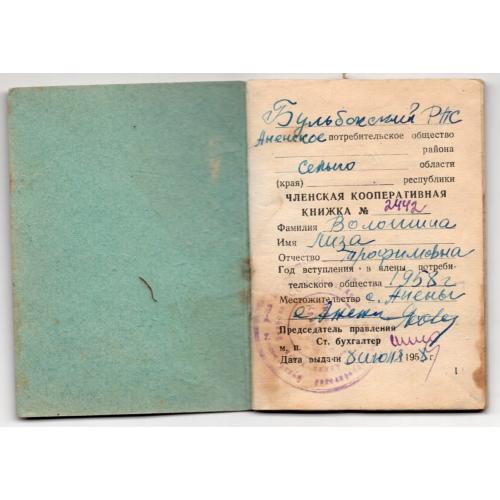 Бульбокский РПС
Аненское потребительское общество
района
сельпо области
(края) республики
ЧЛЕНСКАЯ КООПЕРАТИВНАЯ
КНИЖКА № 2442
Фамилия Волошина
Имя Лиза
Отчество Трофимовна
Год вступления в члены потреби-
тельского общества 1958г
Местожительство с. Анены
с. Анены
Председатель правления
Ст. бухгалтер
м. п.
Дата выдачи 8 июля 1958 г.
1